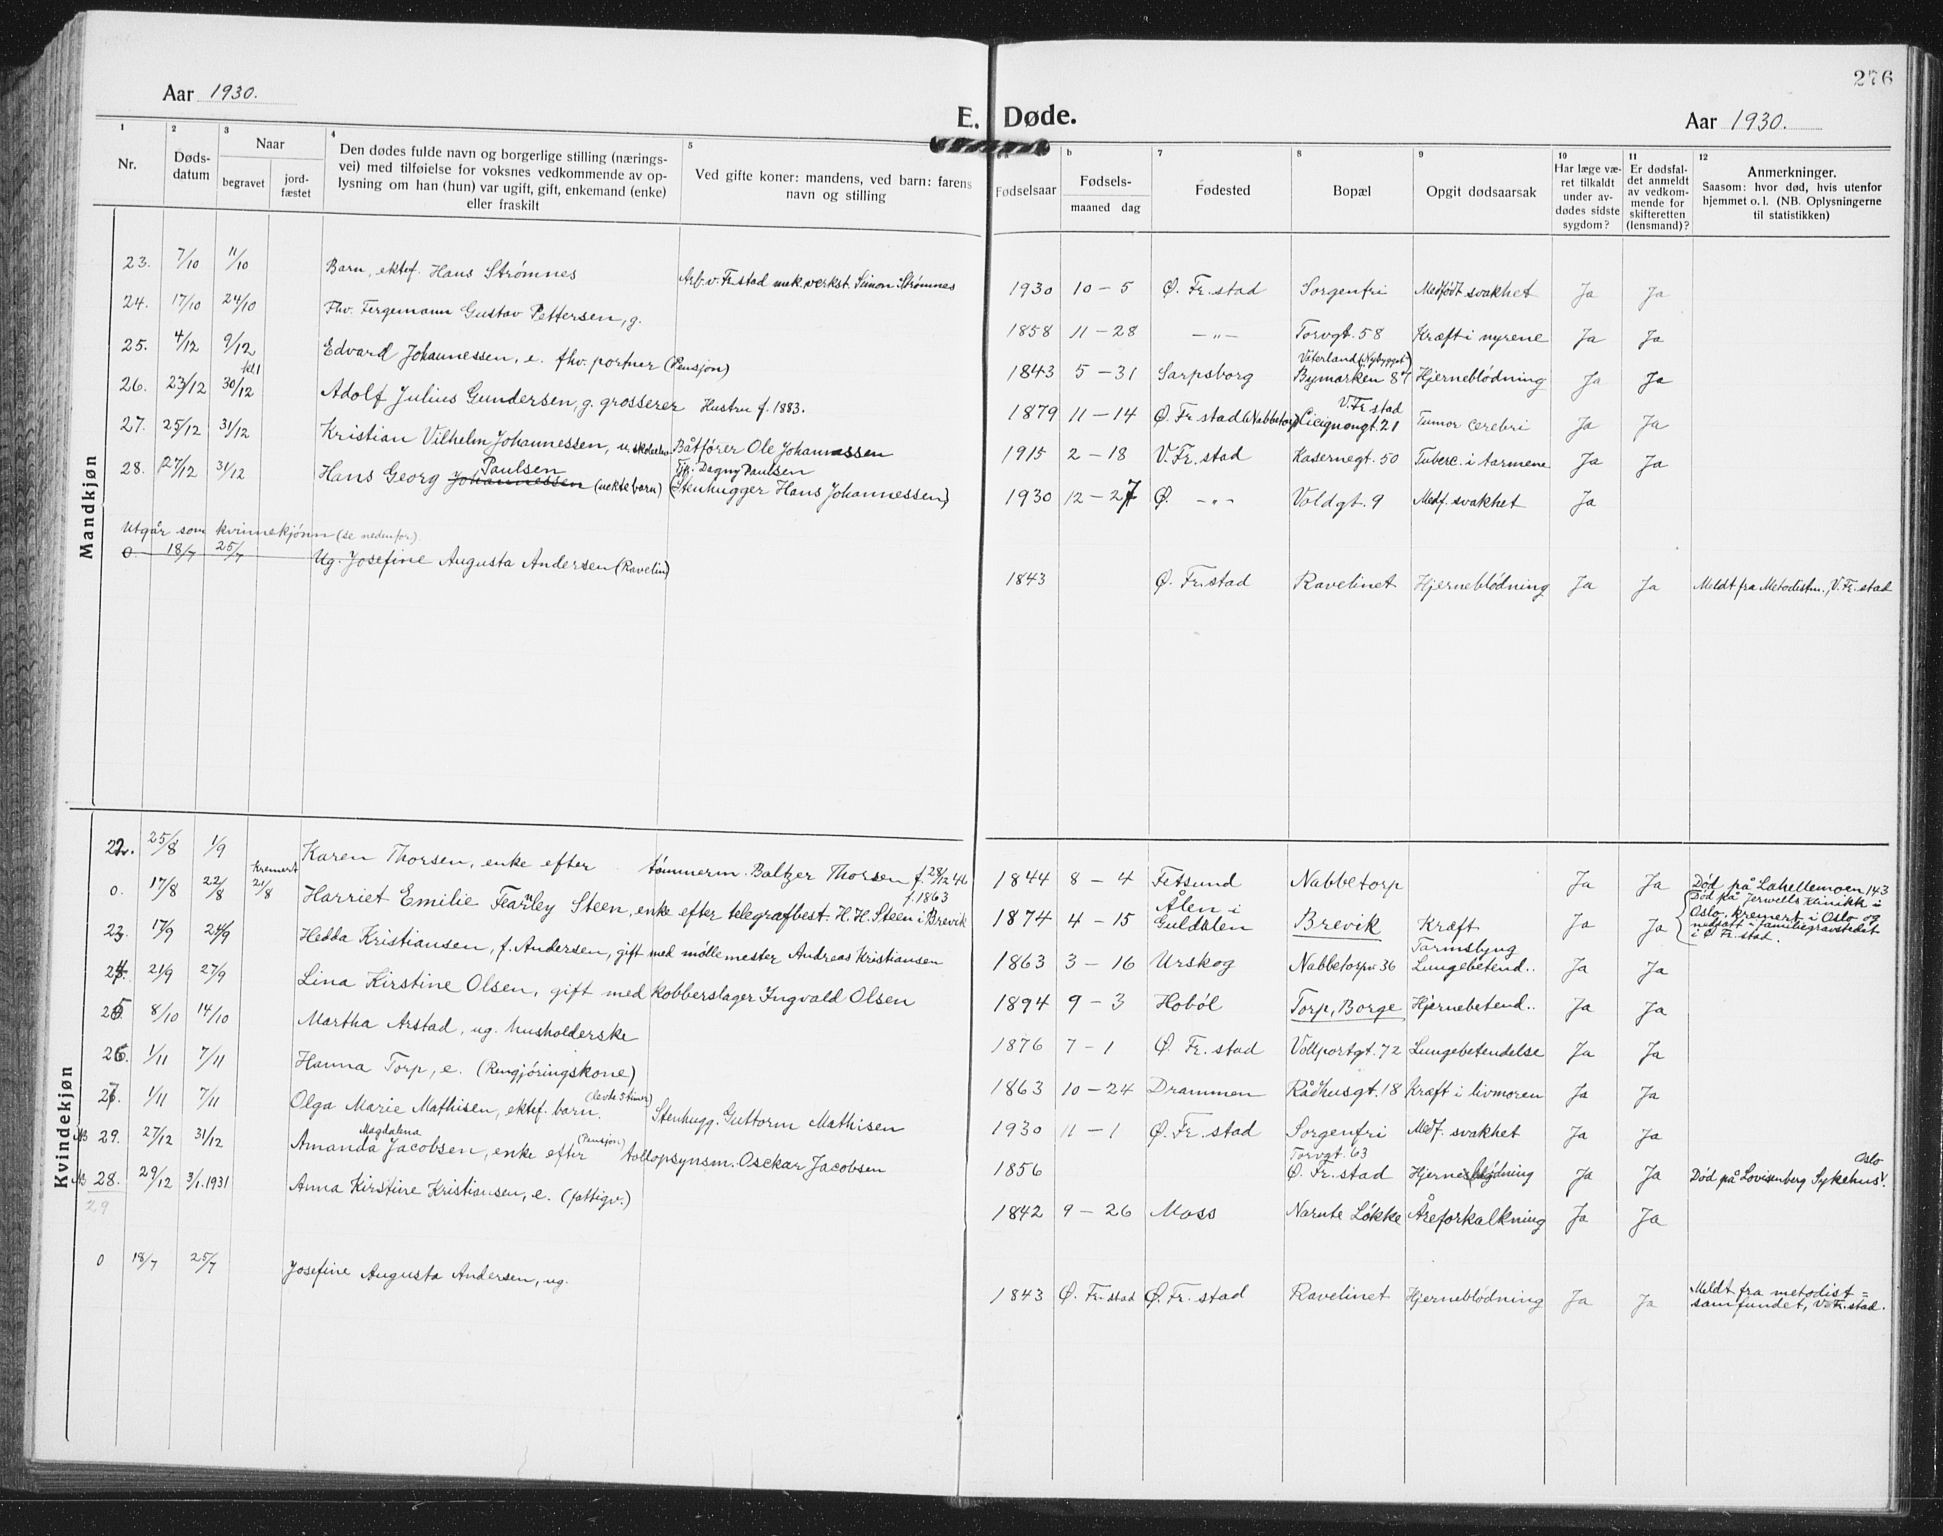 276
Aar 1930.
E. Døde.
Aar 1930.
1 Nr.
2 Døds-datum
3 Naar begravet jord-fæstet
4 Den dødes fulde navn og borgerlige stilling (nærings-
vei) med tilføielse for voksnes vedkommende av op-
lysning om han (hun) var ugift, gift, enkemand (enke)
eller fraskilt
5 Ved gifte koner: mandens, ved barn: farens
navn og stilling
Fødselsaar
b Fødsels- maaned dag
7 Fødested
8 Bopæl
9 Opgit dødsaarsak
10 Har læge væ-
ret tilkaldt
under av-
dødes sidste
sygdom?
11 Er dødsfal-
det anmeldt
av vedkom-
mende for
skifteretten
(lensmand)?
12 Anmerkninger.
Saasom: hvor død, hvis utenfor
hjemmet o. l. (NB. Oplysningerne
til statistikken)
Mandkjøn
23. 7/10 11/10 Barn, ektef. Hans Strømnes Arb. v. Fr.stad mek. verkst. Simon Strømnes 1930 10 – 5 Ø. Fr. stad Sorgenfri Medfødt svakhet Ja Ja
24. 17/10 24/10 Fhv. Fergemann Gustav Pettersen, g. 1858 11 – 28 –„– Torvgt. 58 Kræft i nyrene Ja Ja
25. 4/12 9/12 Edvard Johannessen, e. fhv. portner (Pensjon) 1843 5 – 31 Sarpsborg Vaterland (Nybygget) Bymarken 87 Hjerneblödning Ja Ja
26. 23/12 kl 1 30/12 Adolf Julius Gundersen, g. grosserer Hustru f. 1883. 1879 11 – 14 Ø. Fr. stad (Nabbetorp) V. Fr. stad Cicignongt. 21 Tumor cerebri Ja Ja
27. 25/12 31/12 Kristian Vilhelm Johannessen, u. Båtfører Ole Johannessen 1915 2 – 18 V. Fr. stad Kasernegt. 50 Tuberc. i tarmene Ja Ja
28. 27/12 31/12 Hans Georg Johannessen Paulsen (uekte barn) Tjp. Dagny Paulsen (Stenhugger Hans Johannessen) 1930 12 – 27 Ø. –„– Voldgt. 9 Medf. svakhet Ja
Utgår som kvinnekjønn (se nedenfor)
0 18/7 25/7 Ug. Josefine Augusta Andersen (Ravelin) 1843 Ø. Fr. stad Ravelinet Hjerneblödning Ja Ja Meldt fra Metodistm., V. Fr. stad
Kvindekjøn
22. 25/8 1/9 Karen Thorsen, enke efter tömmerm. Baltzer Thorsen f. 28/12 46 1844 8 – 4 Fetsund Nabbetorp Ja Ja Död på Lahellemoen 143
0. 17/8 22/8 Kremert 21/8 Harriet Emilie Fearnley Steen, enke efter telegrafbest. H. H. Steen i Brevik f. 1863 1874 4 – 15 Ålen i Guldalen Brevik Kræft Ja Ja Död på Jerwells klinikk i Oslo, kremert i Oslo og nedsatt i familiegravstedet i Ø. Fr. stad.
23. 17/9 24/9 Hedda Kristiansen, f. Andersen, gift med möllemester Andreas Kristiansen 1863 3 – 16 Urskog Nabbetorp 36 Tarmslyng Lungebetend.. Ja Ja
24. 21/9 27/9 Lina Kirstine Olsen, gift med kobberslager Ingvald Olsen 1894 9 – 3 Hobøl Torp, Borge Hjernebetend.. Ja Ja
25. 8/10 14/10 Martha Arstad, ug. husholderske 1876 7 – 1 Ø. Fr. stad Vollportgt. 72 Lungebetendelse Ja Ja
26. 1/11 7/11 Hanna Torp, e. (Rengjøringskone) 1863 10 – 24 Drammen Rådhusgt. 18 Kræft i livmoren Ja Ja
27. 1/11 7/11 Olga Marie Mathisen, ektef. barn. (levde 5 timer) Stenhugg. Guttorm Mathisen 1930 11 – 1 Ø. Fr. stad Sorgenfri Medf. svakhet Ja Ja
NB 29. 27/12 31/12 Amanda Magdalena Jacobsen, enke efter (Pensjon) tollopsynsm. Osckar Jacobsen 1856 Torvgt. 63 Ø. Fr. stad Hjerneblødning Ja Ja Död på Lovisenberg Sykehus, Oslo
NB 28. 29/12 3/1. 1931 Anna Kirstine Kristiansen, e. (fattigv.) 1842 9 – 26 Moss Narnte Løkke Åreforkalkning Ja Ja
29
0 18/7 25/7 Josefine Augusta Andersen, ug. 1843 Ø. Fr. stad Ø. Fr. stad Ravelinet Hjerneblödning Ja Ja Meldt fra metodist=
samfundet, V. Fr. stad.